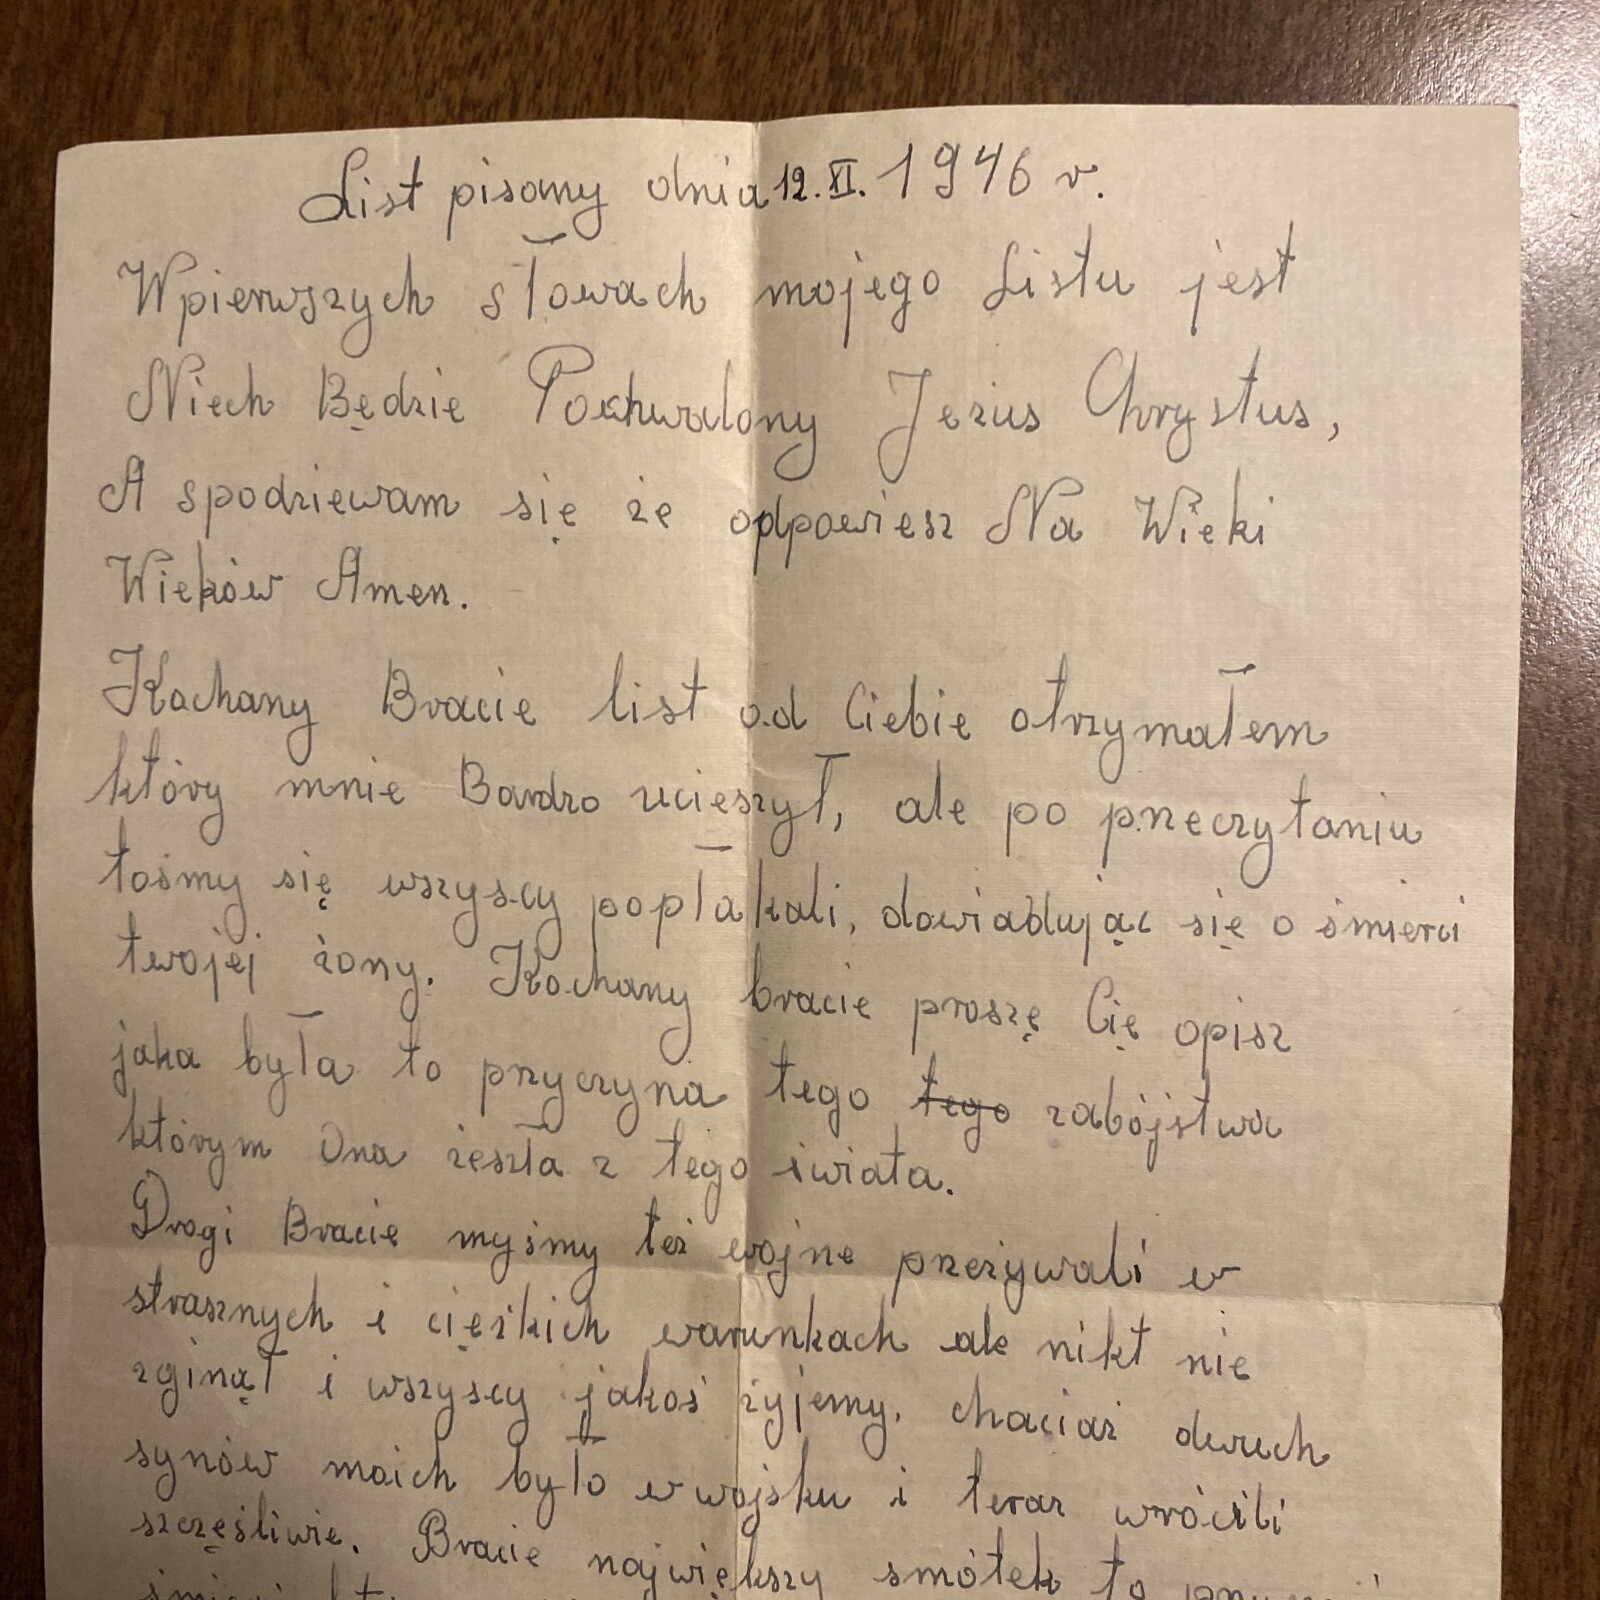 List pisany dnia 12.XI. 1946 r.
Wpierwszych słowach mojego Listu jest
Niech Będzie Pochwalony Jezus Chrystus,
A spodziewam się że odpowiesz Na Wieki
Wieków Amen.
Kochany Bracie list od Ciebie otrzymałem
który mnie Bardzo ucieszył, ale po przeczytaniu
tośmy się wszyscy popłakali, dowiadując się o śmierci
twojej żony. Kochany bracie proszę Cię opisz
jaka była to przyczyna tego tego zabójstwa
którym Ona zeszła z tego świata.
Drogi Bracie myśmy też wojne przeżywali w
strasznych i ciężkich warunkach ale nikt nie
zginął i wszyscy jakoś żyjemy, chaciaż dwuch
synów moich było w wojsku i teraz wrócili
szczęśliwie. Bracie największy smótek to